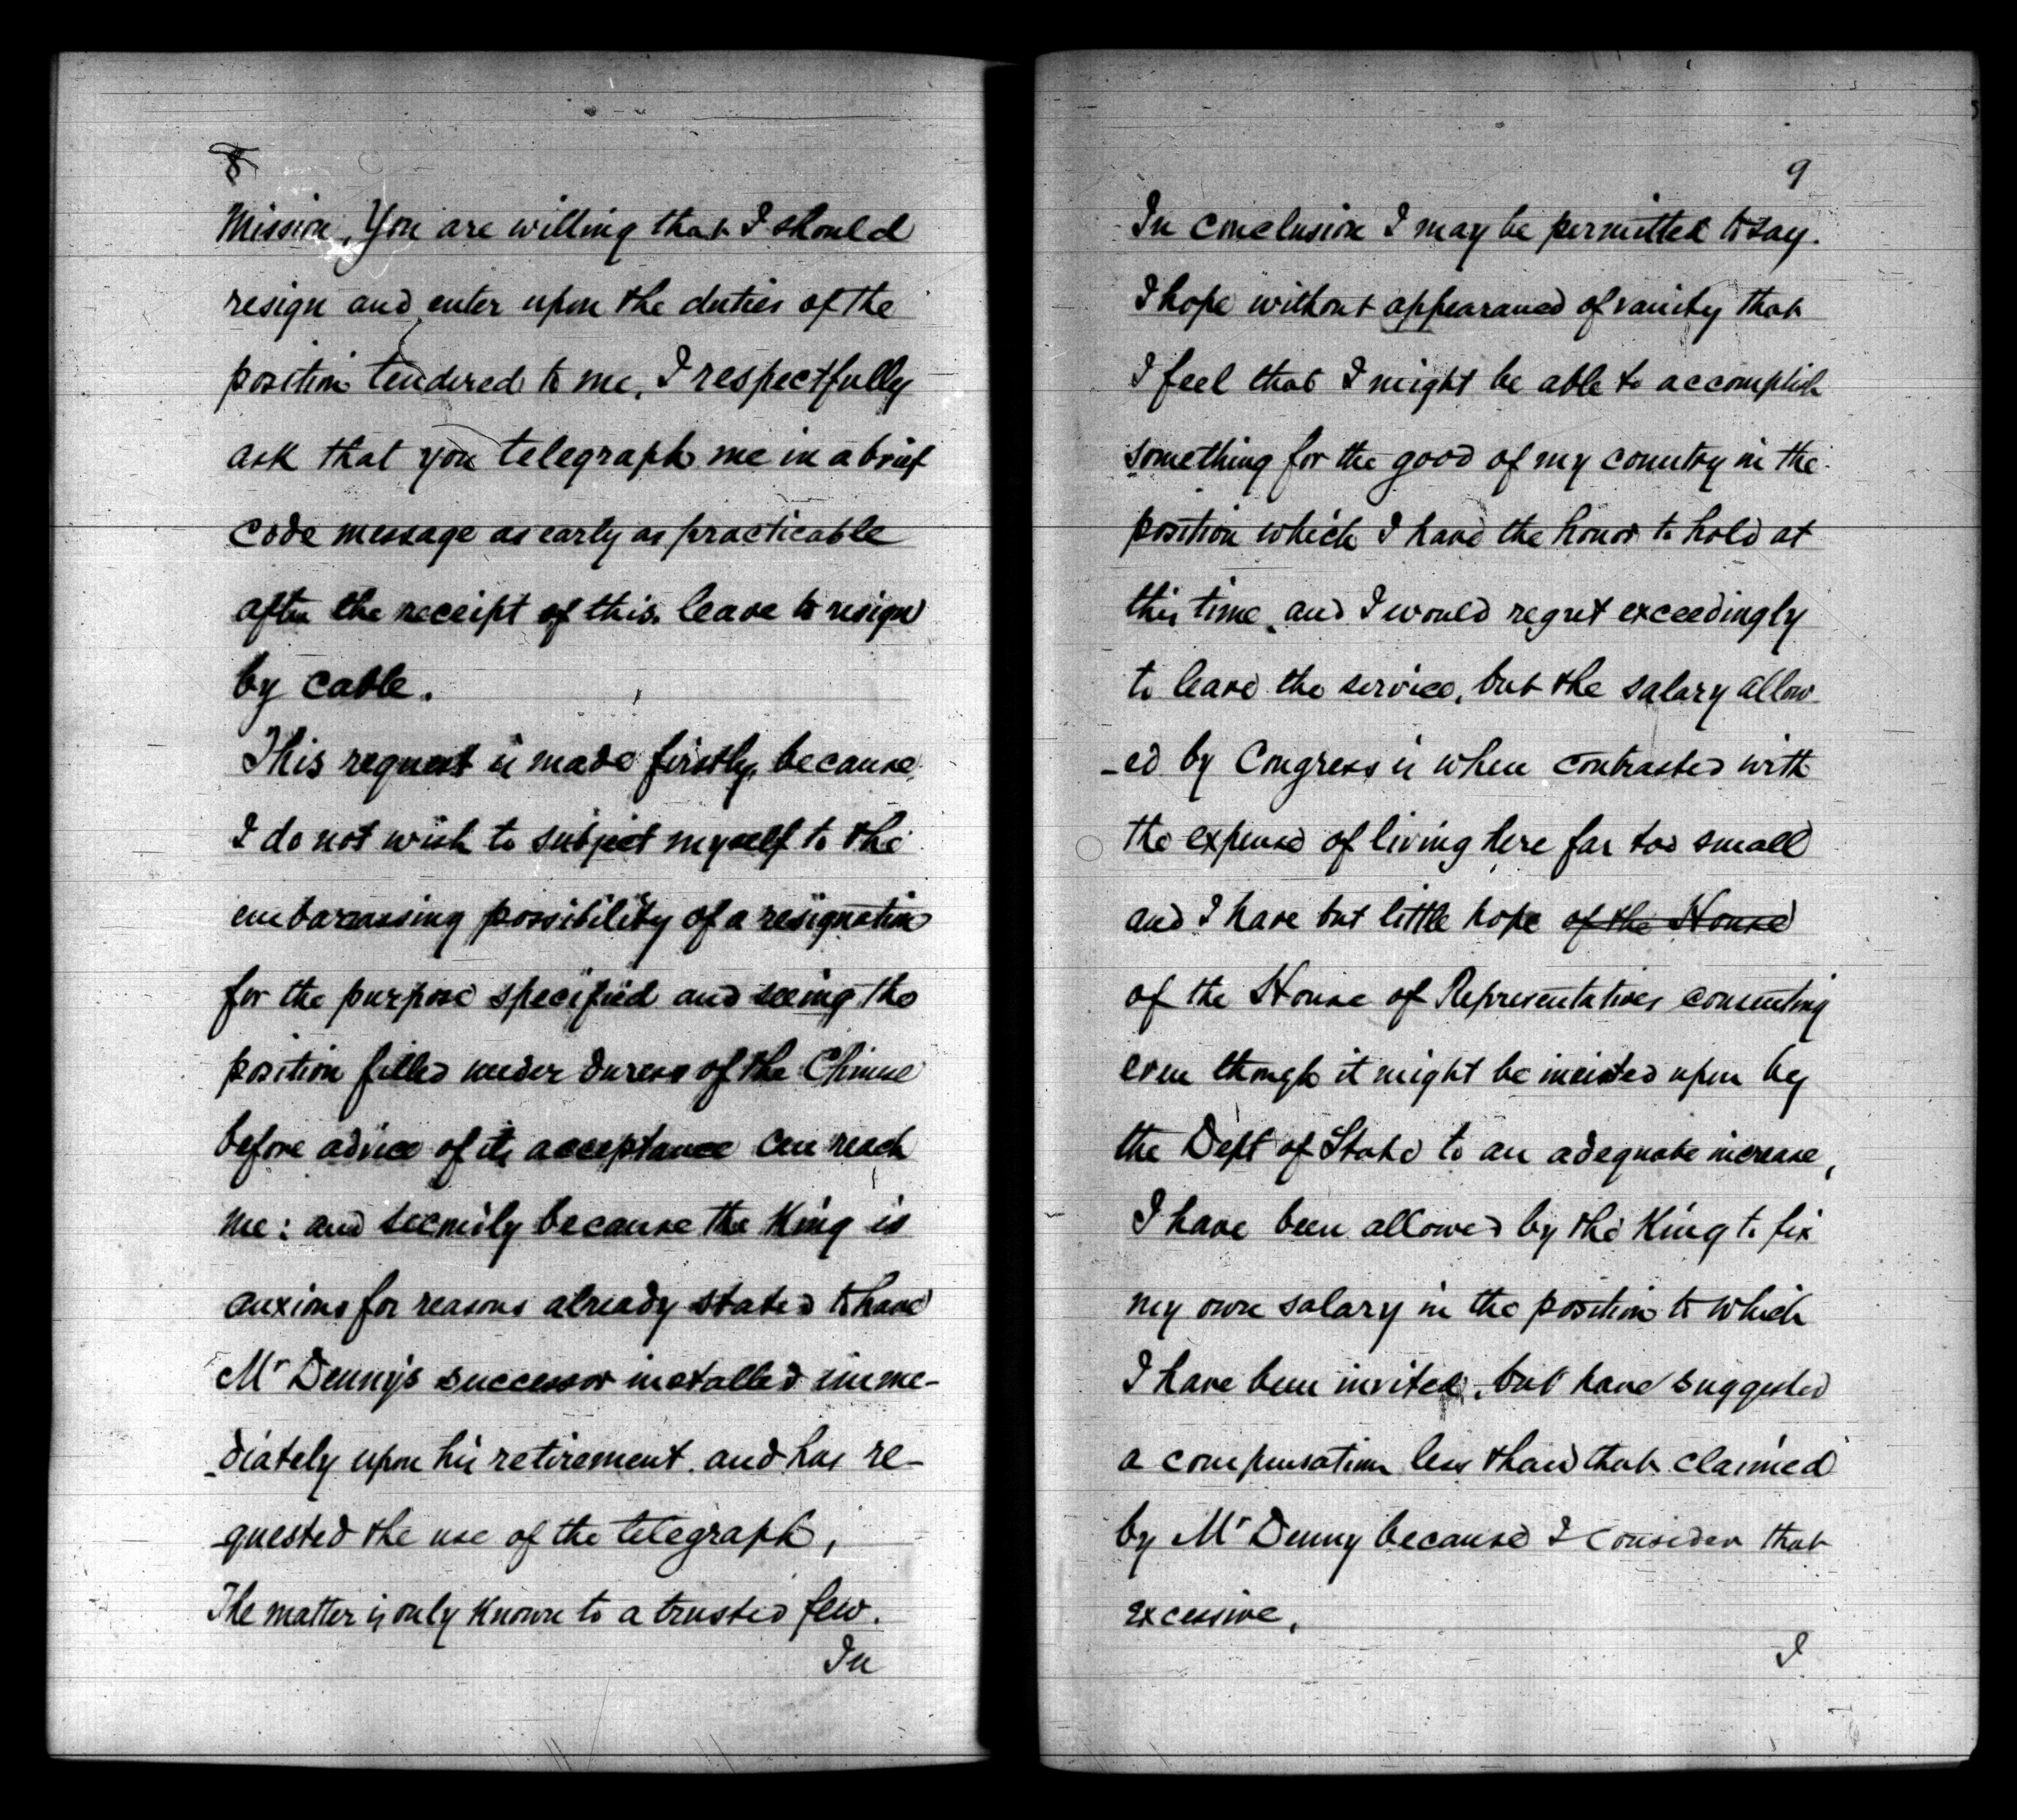 8
Mission, You are willing that I should
resign and enter upon the duties of the
position tendered to me, I respectfully
ask that you telegraph me in a brief
code message as early as practicable
after the receipt of this leave to resign
by cable.
This request is made firstly, because
I do not wish to subject myself to the
embarrassing possibility of a resignation
for the purpose specified and seeing the
position filled under duress of the Chinese
before advice of its acceptance can reach
me: and secondly because the King is
anxious for reasons already stated to have
Mr Denny's successor installed imme-
-diately upon his retirement. and has re-
-quested the use of the telegraph,
The matter is only known to a trusted few.
In
9
In conclusion I may be permitted to say.
I hope without appearance of vanity that
I feel that I might be able to accomplish
something for the good of my country in the
position which I have the honor to hold at
this time, and I would regret exceedingly
to leave the service, but the salary allow
-ed by Congress is when contrasted with
the expense of living here far too small
and I have but little hope of the House
of the House of Representatives consenting
even though it might be insisted upon by
the Dept of State to an adequate increase,
I have been allowed by the King to fix
my own salary in the position to which
I have been invited, but have suggested
a compensation less than that claimed
by Mr Denny because I consider that
excessive,
I